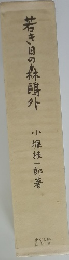 若き日の森鷗外
小堀桂一郎著